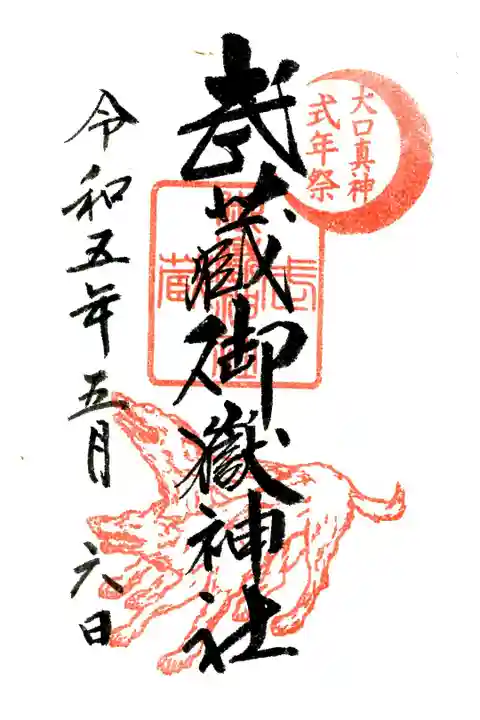 大口真神
式年祭
武蔵御嶽神社
令和五年五月六日